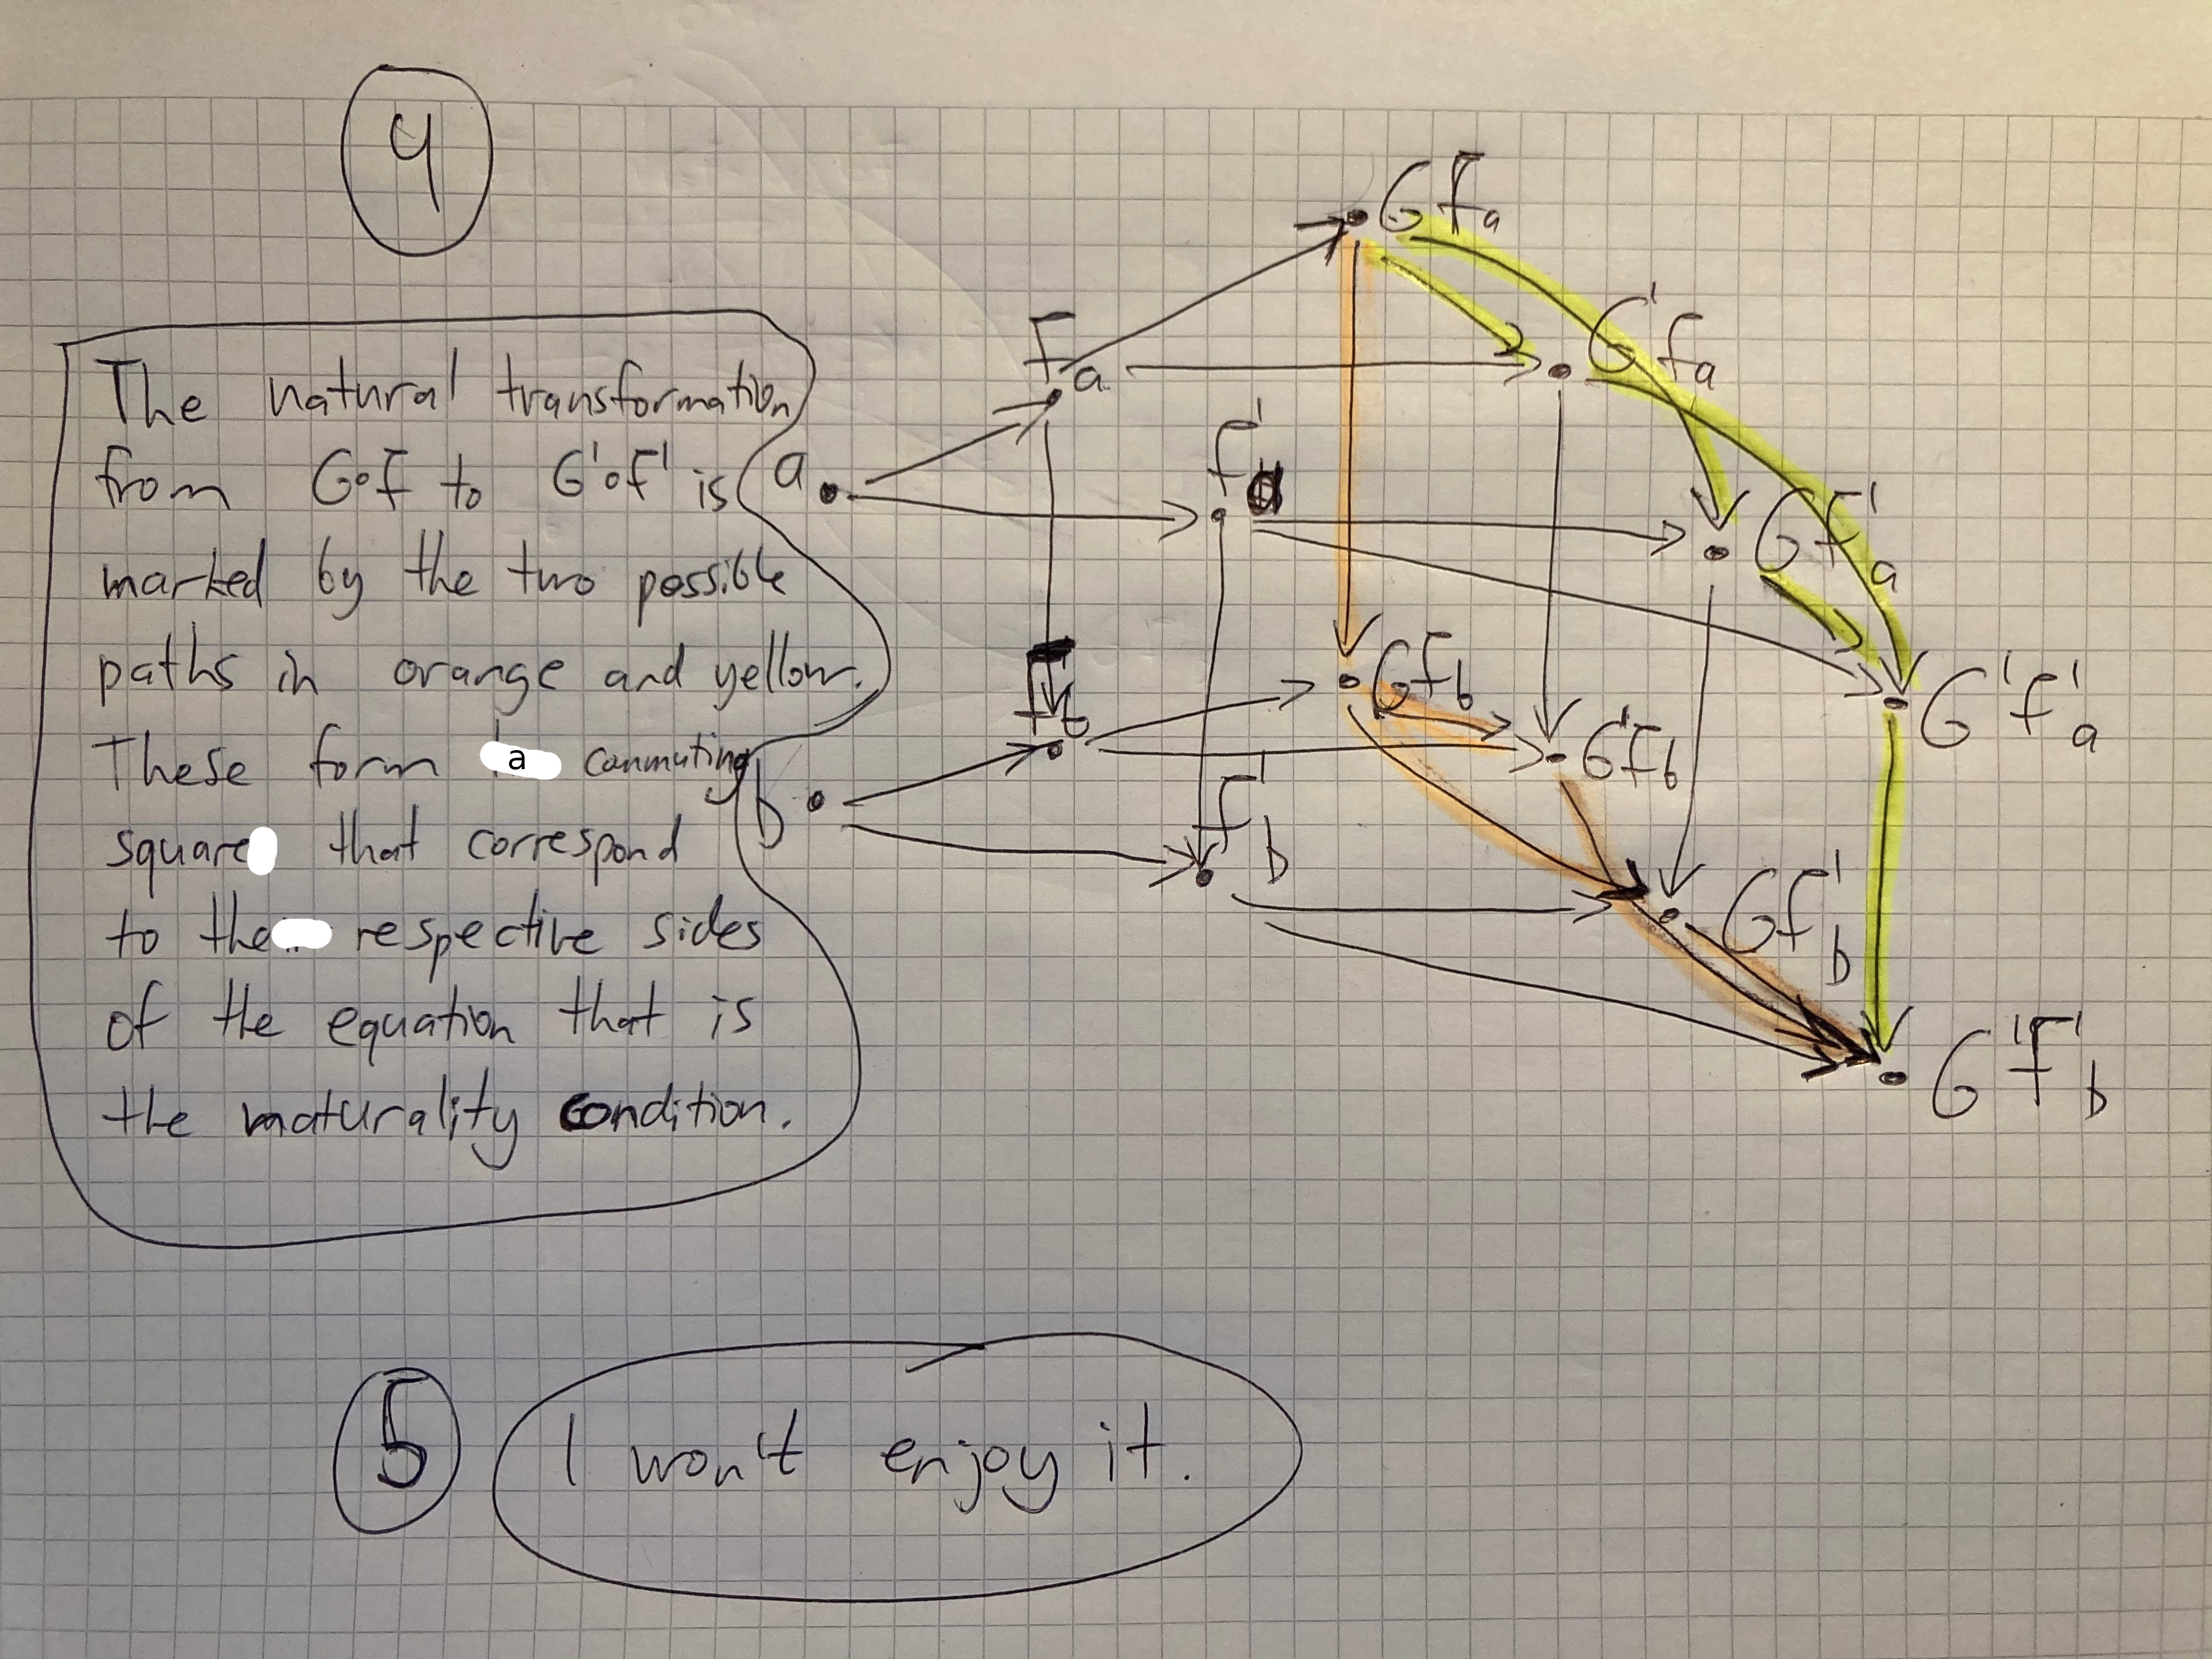 4
The natural transformation
from G∘F to G'∘F' is
marked by the two possible
paths in orange and yellow.
These form a commuting
square that correspond
to the respective sides
of the equation that is
the naturality condition.
a
b
Fa
F'a
Fb
F'b
GFa
G'Fa
GF'a
G'F'a
GFb
G'Fb
GF'b
G'F'b
5
I won't enjoy it.